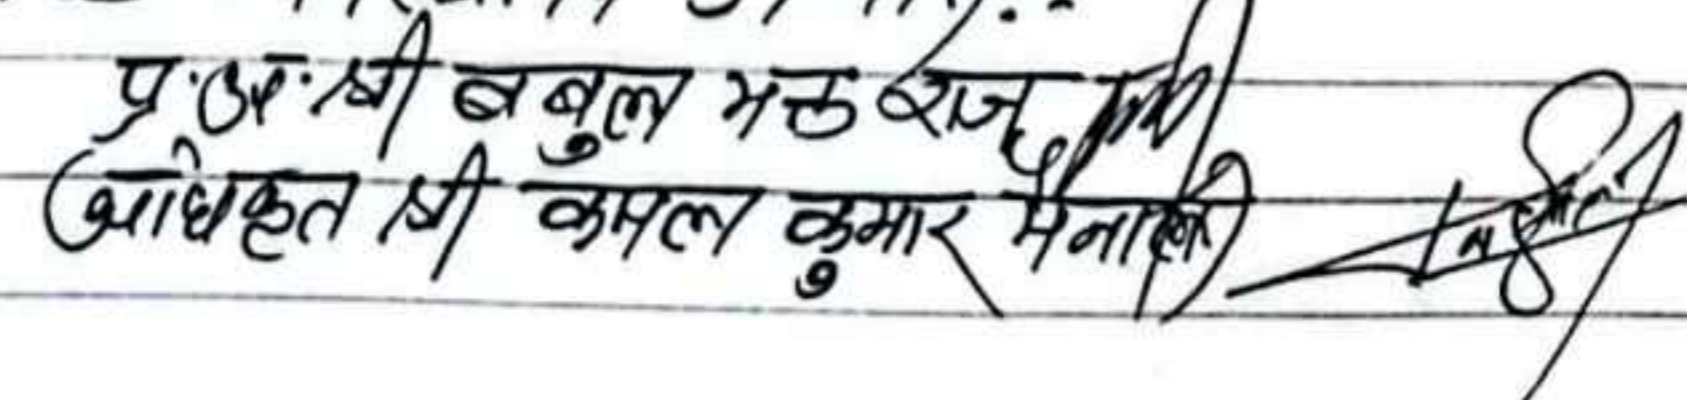 प्र.अ. श्री बबुल भक्त राज
अधिकृत श्री कमल कुमार मैनाली